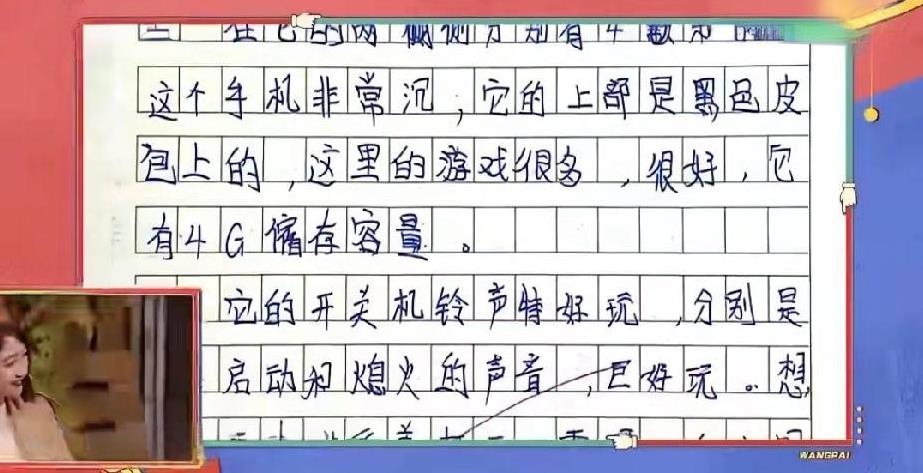 在它的两侧分别有4
这个手机非常沉，它的上部是黑色皮
包上的，这里的游戏很多，很好，它
有4G储存容量。
它的开关机铃声特好玩，分别是
启动和熄火的声音，巨好玩。想
WANGPAI